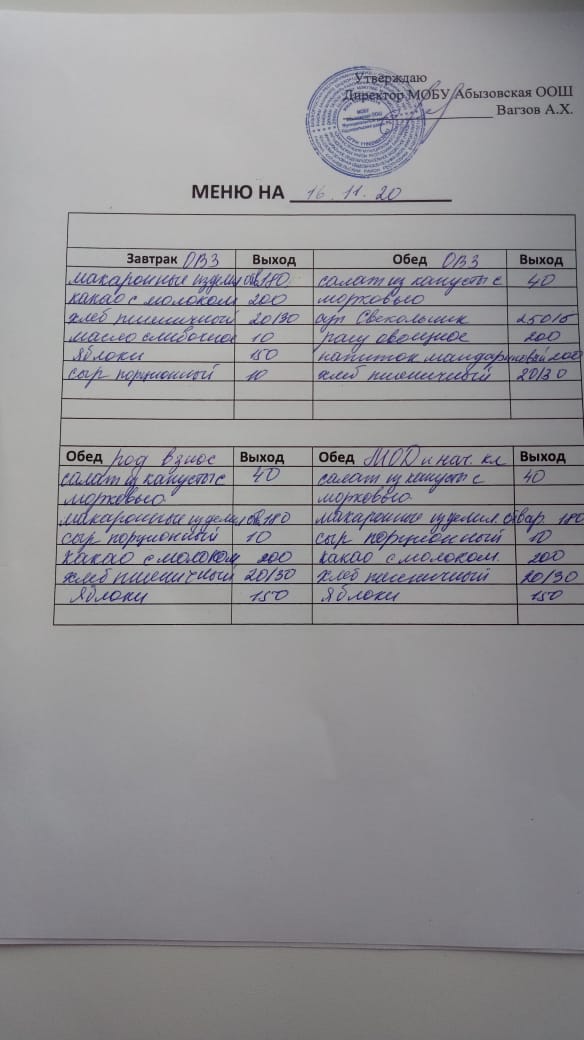 Утверждаю
Директор МОБУ Абызовская ООШ
Вагзов А.Х.
МЕНЮ НА 16.11.20
Завтрак ОВЗ Выход Обед ОВЗ Выход
макаронные изделия отв. 180 салат из капусты с 40
какао с молоком 200 морковью
хлеб пшеничный 20/30 суп Свекольник 250/5
масло сливочное 10 рагу овощное 200
Яблоки 150 напиток мандариновый 200
сыр порционный 10 хлеб пшеничный 20/30
Обед род взнос Выход Обед МОД и нач. кл Выход
салат из капусты с 40 салат из капусты с 40
морковью морковью
макаронные изделия отв 180 макаронные изделия отвар. 180
сыр порционный 10 сыр порционный 10
какао с молоком 200 какао с молоком. 200
хлеб пшеничный 20/30 хлеб пшеничный 20/30
Яблоки 150 Яблоки 150